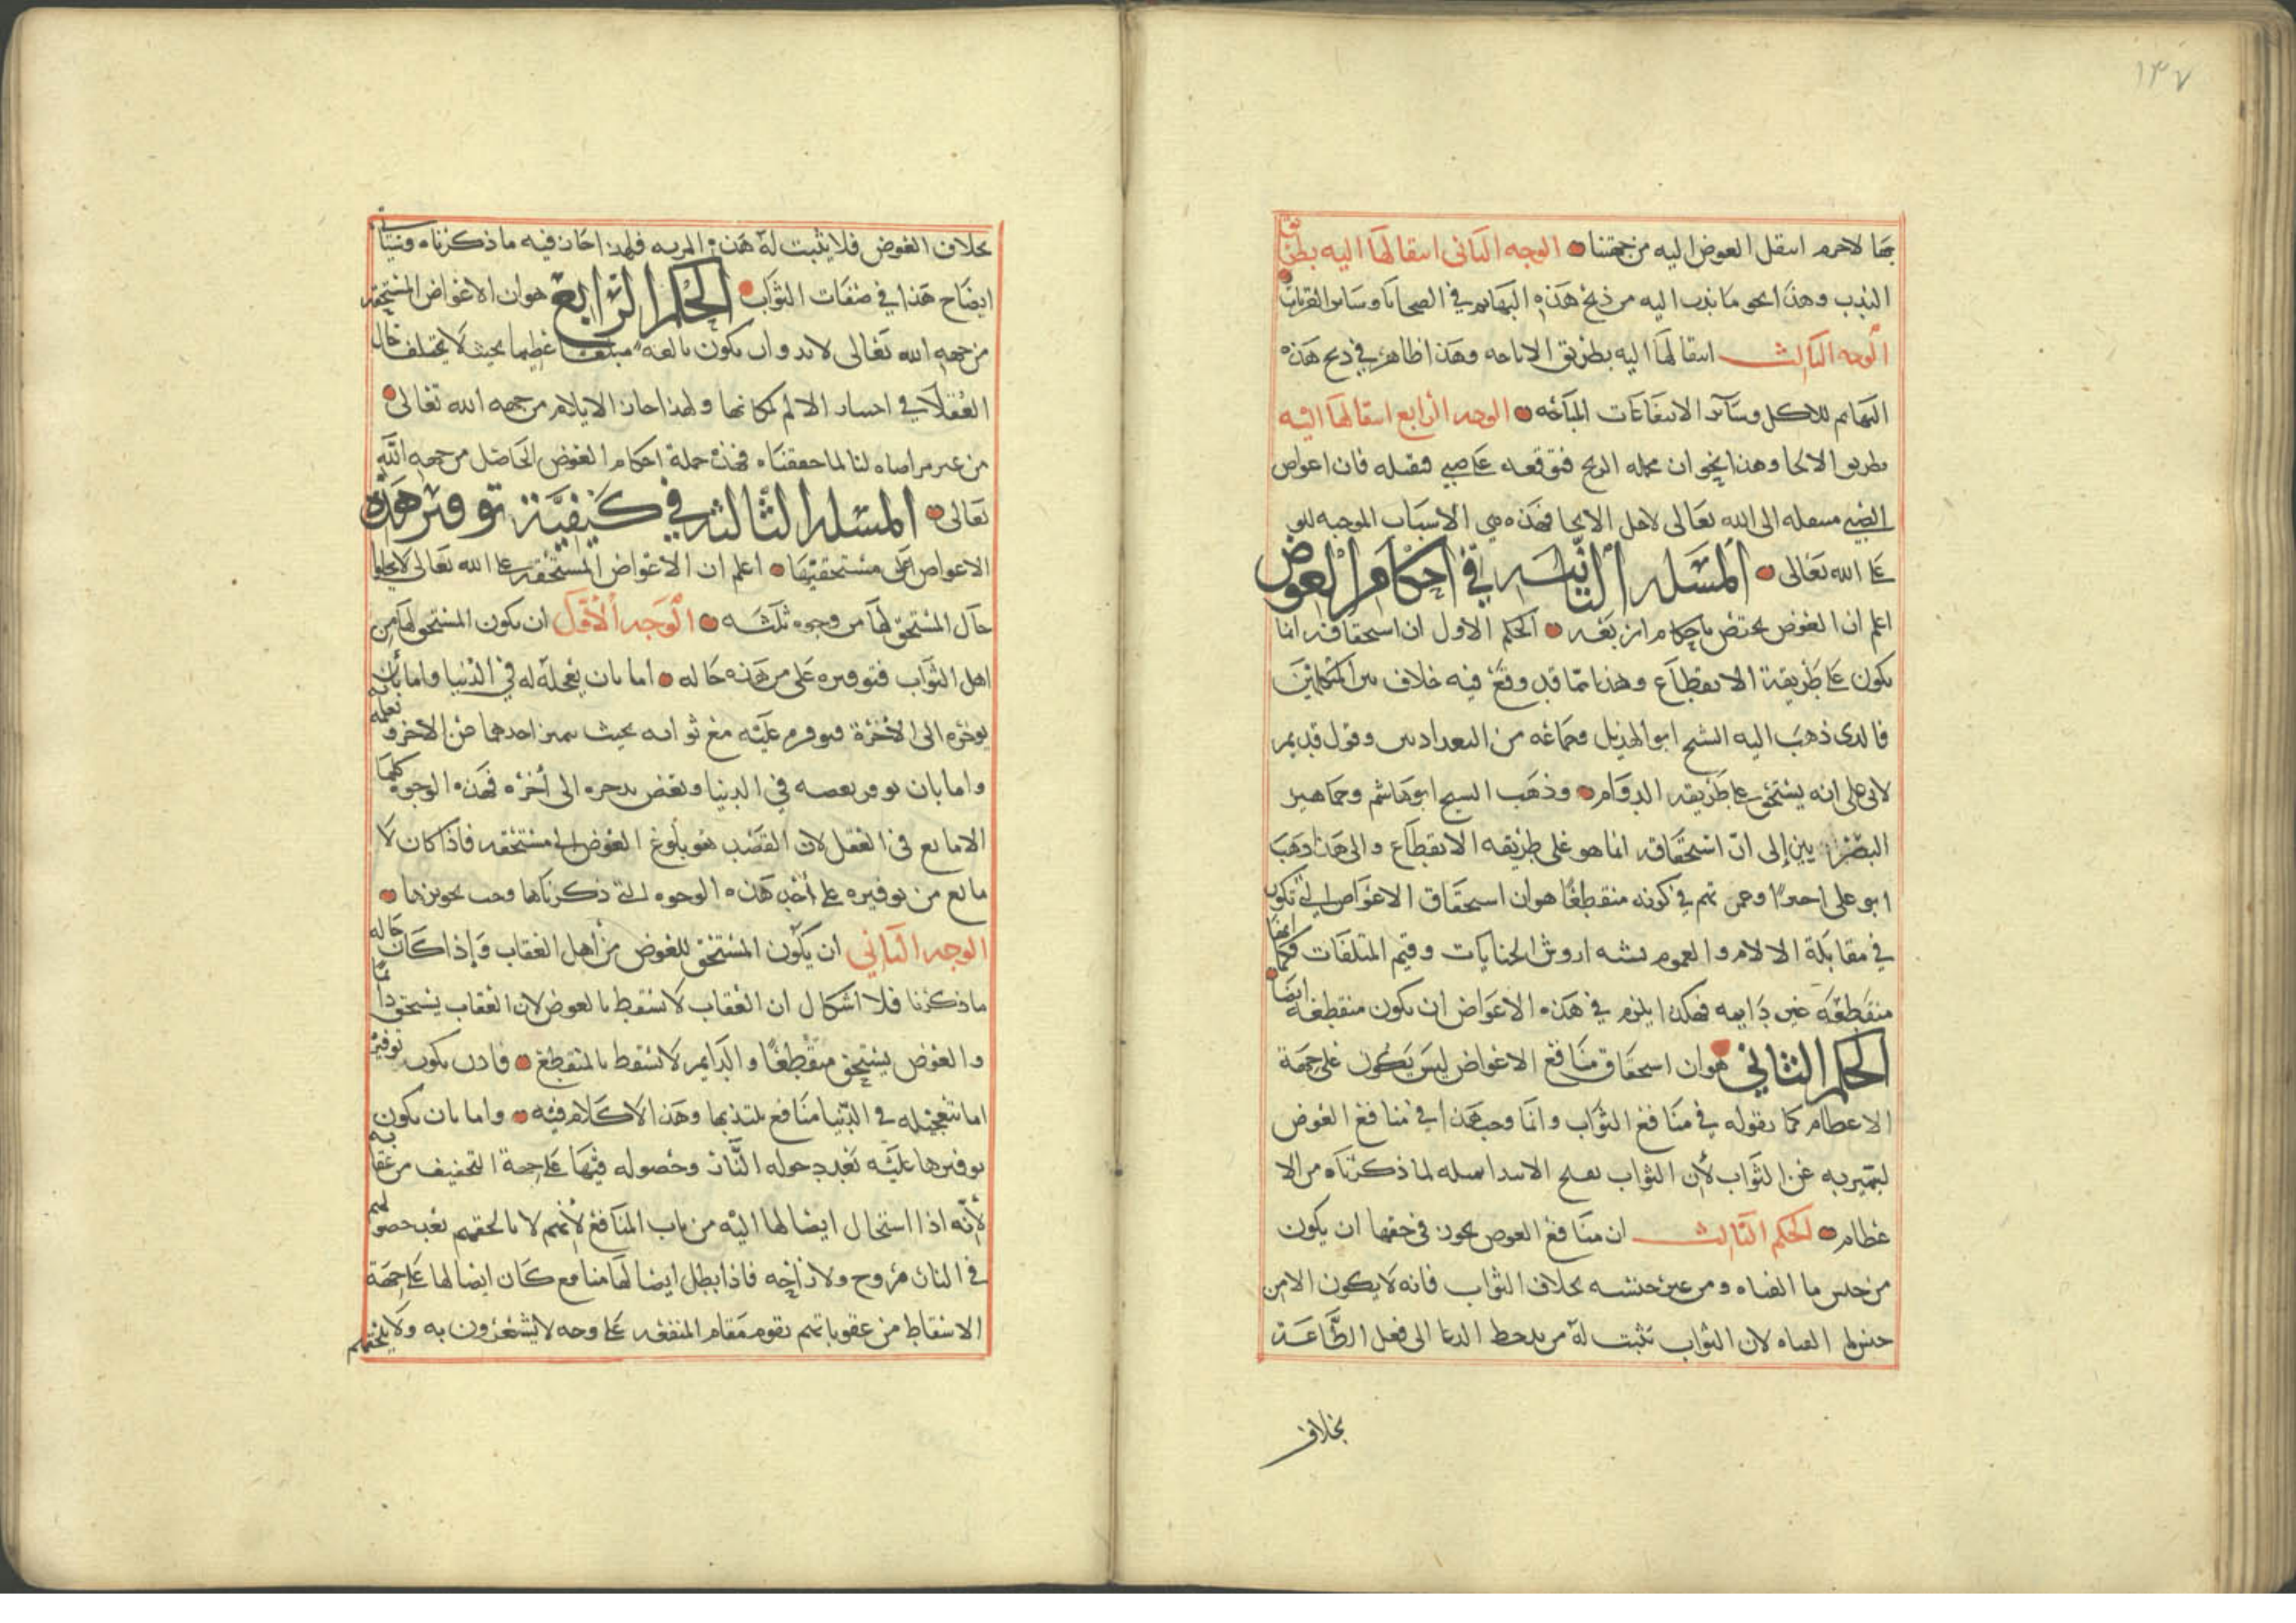 ١٤٧
بها لاجرم انتقل العوض اليه من جهتنا الوجه الثاني انتقالها اليه بطريق
الندب وهذا نحو ما ندب اليه من ذبح هذه البهايم في الضحايا وساير القربات
الوجه الثالث انتقالها اليه بطريق الاباحه وهذا ظاهر في ذبح هذه
البهايم للاكل وسآئر الانتفاعات المباحه الوجه الرابع انتقالها اليه
بطريق الالجا وهذا نحو ان تحمله الريح فتوقعه على صبي فقتله فان اعواض
الصبي منتقله الى الله تعالى لاجل الالجا فهذه هي الاسباب الموجبه للعوض
على الله تعالى المسئلة الثانية في احكام العوض
اعلم ان العوض يختص باحكام اربعه الحكم الاول ان استحقاقه انما
يكون على طريقة الانقطاع وهذا مما قد وقع فيه خلاف بين المتكلمين
فالذي ذهب اليه الشيخ ابو الهذيل وجماعه من البغداديين وقول قديم
لابي علي انه يستحق على طريقه الدوام وذهب الشيخ ابو هاشم وجماهير
البصريين إلى انّ استحقاقه انما هو على طريقه الانقطاع والى هذا ذهب
ابو علي اخيرًا وعمدتهم في كونه منقطعًا هو ان استحقاق الاعواض التي تكون
في مقابلة الالام والغموم يشبه اروش الجنايات وقيم المتلفات فكما انها
منقطعة غير دايمه فهكذا يلزم في هذه الاعواض ان تكون منقطعه ايضا
الحكم الثاني هو ان استحقاق منافع الاعواض ليس يكون على جهة
الاعظام كما نقوله في منافع الثواب وانما وجب هذا في منافع العوض
ليتميز به عن الثواب لأن الثواب يقبح الابتدا بمثله لما ذكرناه من الا
عظام الحكم الثالث ان منافع العوض يجوز في حقها ان يكون
من جنس ما الفناه ومن غير جنسه بخلاف الثواب فانه لا يكون الا من
جنس ما الفناه لان الثواب تثبت له مزيه حظ الدعا الى فعل الطّاعة
بخلاف
بخلاف العوض فلا يثبت له هذه المزيه فلهذا جاز فيه ما ذكرناه وسياتي
ايضاح هذا في صفات الثواب الحكم الرّابع هو ان الاعواض المستحقه
من جهه الله تعالى لا بد وان يكون بالغه مبلغا عظيما بحيث لا يختلف حال
العقلآ في اختيار الالم لمكانها ولهذا جاز الايلام من جهه الله تعالى
من غير مراضاه لنا لما حققناه فهذه جملة احكام العوض الحاصل من جهه الله
تعالى المسئلة الثالثة في كيفيّة توفير هذه
الاعواض على مستحقيها اعلم ان الاعواض المستحقه على الله تعالى لا يخلوا
حآل المستحق لها من وجوه ثلثه الوجه الأوّل ان يكون المستحق لها من
اهل الثواب فتوفيره على من هذه حاله اما بان يعجله له في الدنيا واما بان
يوخره الى الاخرة فيوفره عليه مع ثوابه بحيث يتميز احدهما عن الاخر ويعلمه
واما بان يوفر بعضه في الدنيا وبعض يدخره الى أخره فهذه الوجوه كلها
لا مانع في العقل لان القصد هو بلوغ العوض الى مستحقه فاذا كان لا
مانع من توفيره على أحد هذه الوجوه التي ذكرناها وجب تجويزها
الوجه الثاني أن يكون المستحق للعوض من أهل العقاب وإذا كان حاله
ما ذكرنا فلا اشكال ان العقاب لا يسقط بالعوض لان العقاب يستحق دائما
والعوض يستحق منقطعًا والدايم لا يسقط بالمنقطع فاذن يكون توفيره
اما بتعجيله في الدنيا منافع يلتذ بها وهذا لا كلام فيه واما بان يكون
توفيرها عليه بعد دخوله النّار وحصوله فيها على جهة التخفيف من عقابه
لأنّه اذا استحال ايصالها اليه من باب المنافع لأنهم لا يلحقهم بعد حصولهم
في النار روح ولا راحه فاذا بطل ايصالها منافع كان ايصالها على جهة
الاسقاط من عقوباتهم يقوم مقام المنفعه على وجه لا يشعرون به ولا يلحقهم